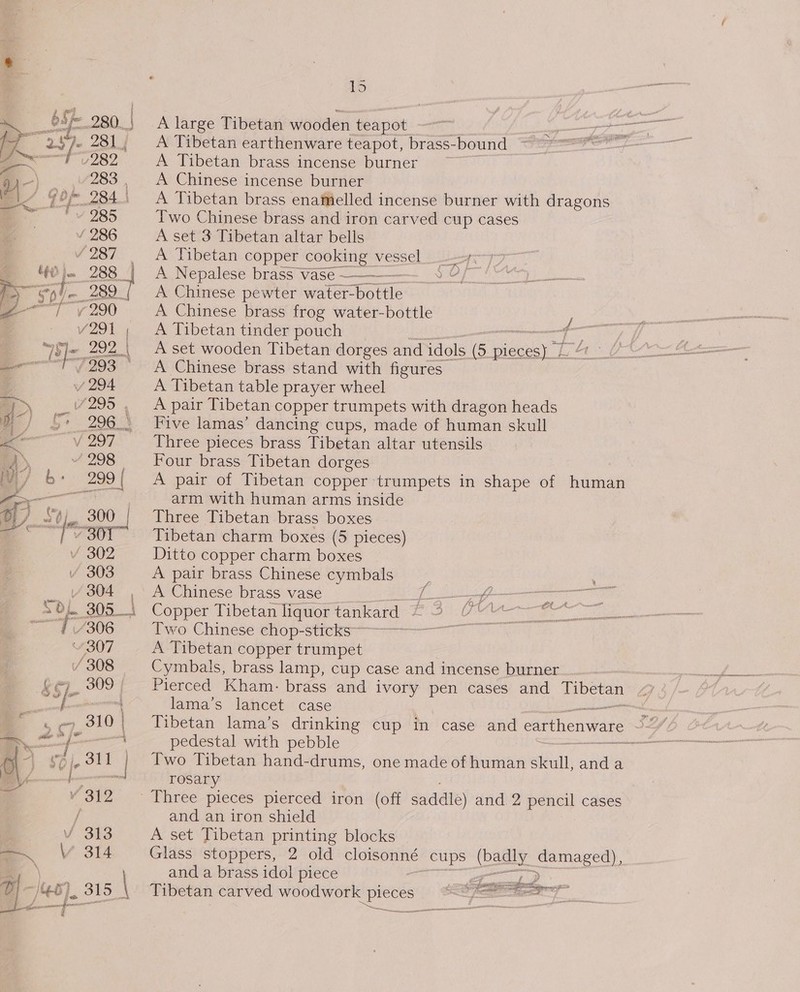 15
65/- 280 A large Tibetan wooden teapot
25/- 281 A Tibetan earthenware teapot, brass-bound
282 A Tibetan brass incense burner
283 A Chinese incense burner
90/- 284 A Tibetan brass enamelled incense burner with dragons
285 Two Chinese brass and iron carved cup cases
286 A set 3 Tibetan altar bells
287 A Tibetan copper cooking vessel
40/- 288 A Nepalese brass vase 50/-
50/- 289 A Chinese pewter water-bottle
290 A Chinese brass frog water-bottle
291 A Tibetan tinder pouch
292 A set wooden Tibetan dorges and idols (5 pieces)
293 A Chinese brass stand with figures
294 A Tibetan table prayer wheel
295 A pair Tibetan copper trumpets with dragon heads
296 Five lamas' dancing cups, made of human skull
297 Three pieces brass Tibetan altar utensils
298 Four brass Tibetan dorges
299 A pair of Tibetan copper trumpets in shape of human
arm with human arms inside
300 Three Tibetan brass boxes
301 Tibetan charm boxes (5 pieces)
302 Ditto copper charm boxes
303 A pair brass Chinese cymbals
304 A Chinese brass vase
50/- 305 Copper Tibetan liquor tankard £3
306 Two Chinese chop-sticks
307 A Tibetan copper trumpet
308 Cymbals, brass lamp, cup case and incense burner
309 Pierced Kham brass and ivory pen cases and Tibetan
lama's lancet case
25/- 310 Tibetan lama's drinking cup in case and earthenware
pedestal with pebble
311 Two Tibetan hand-drums, one made of human skull, and a
rosary
312 Three pieces pierced iron (off saddle) and 2 pencil cases
and an iron shield
313 A set Tibetan printing blocks
314 Glass stoppers, 2 old cloisonné cups (badly damaged),
and a brass idol piece
315 Tibetan carved woodwork pieces